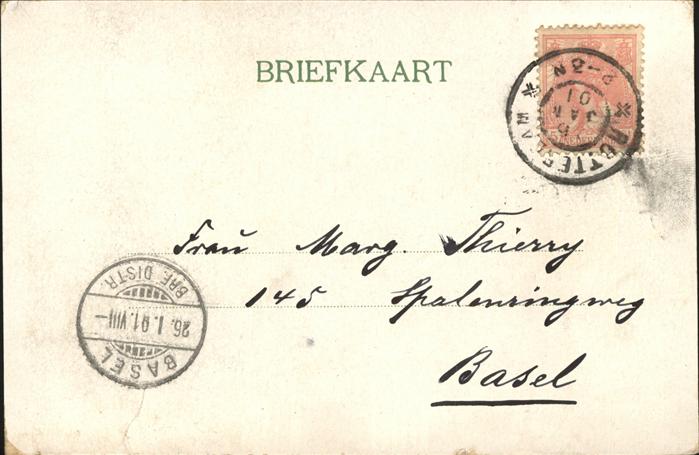 BRIEFKAART
ROTTERDAM
JAN
01
Frau Marg. Thierry
145 Spalenringweg
Basel
BASEL
26. I. 01. VIII–
BRF. DISTR.